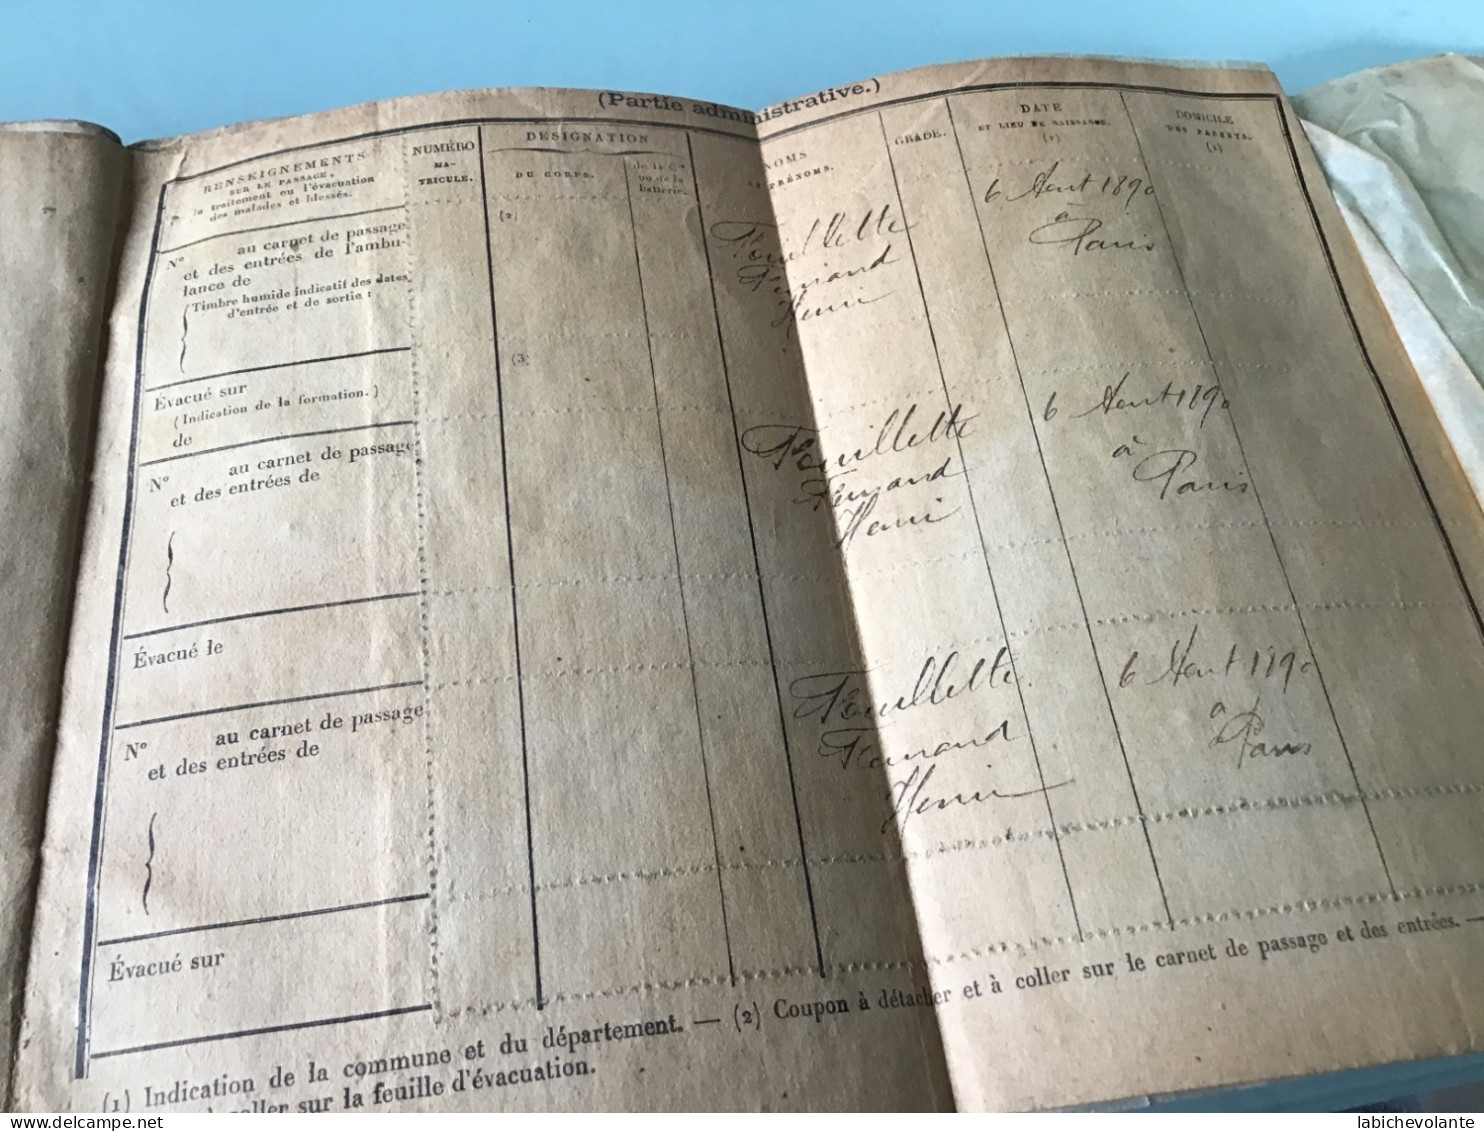 (Partie administrative.)
RENSEIGNEMENTS
SUR LE PASSAGE,
le traitement ou l'évacuation
des malades et blessés.
NUMÉRO
MA-
TRICULE.
DÉSIGNATION
DU CORPS.
de la Cie
ou de la
batterie.
NOMS
ET PRÉNOMS.
GRADE.
DATE
ET LIEU DE NAISSANCE.
(1)
DOMICILE
DES PARENTS.
(1)
N° au carnet de passage
et des entrées de l'ambu-
lance de
Timbre humide indicatif des dates
d'entrée et de sortie :
(2)
Fouillette
Fernand
Henri
6 Aout 1890
à
Paris
Évacué sur
(Indication de la formation.)
de
(3)
N° au carnet de passage
et des entrées de
Fouillette
Fernand
Henri
6 Aout 1890
à
Paris
Évacué le
N° au carnet de passage
et des entrées de
Fouillette
Fernand
Henri
6 Aout 1890
à
Paris
Évacué sur
(1) Indication de la commune et du département. — (2) Coupon à détacher et à coller sur le carnet de passage et des entrées. —
coller sur la feuille d'évacuation.
delcampe.net
labichevolante